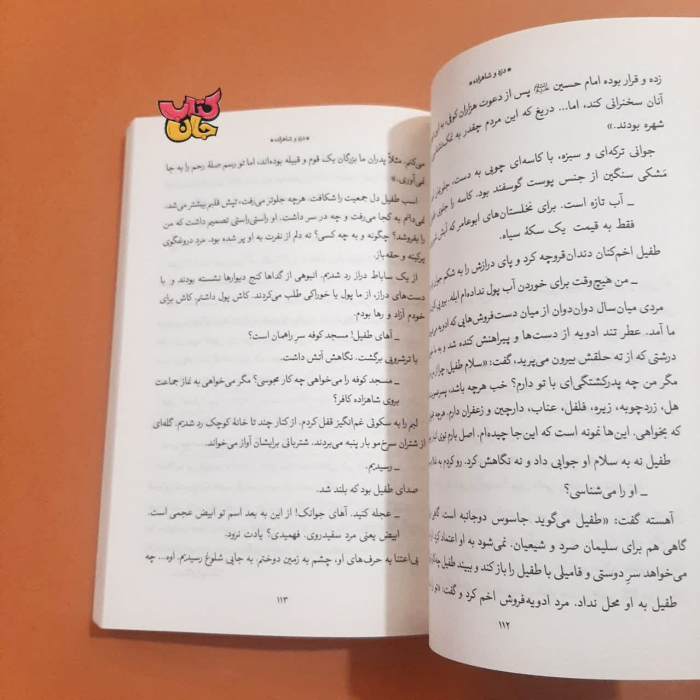 • دزد و شاهزاده •
زده و قرار بوده امام حسین پس از دعوت هزاران کوفی، به
آنان سخنرانی کند، اما... دریغ که این مردم چقدر به
شهره بودند.»
جوانی ترکه‌ای و سبزه، با کاسه‌ای چوبی به دست،
مَشکی سنگین از جنس پوست گوسفند بود. کاسه را جلوی
ـ آب تازه است. برای نخلستان‌های ابوعامر که
فقط به قیمت یک سکهٔ سیاه.
طفیل اخم‌کنان دندان‌قروچه کرد و پای درازش را به شکم
ـ من هیچ‌وقت برای خوردن آب پول نداده‌ام ابله.
مردی میان‌سال دوان‌دوان از میان دست‌فروش‌هایی که ادویه
ما آمد. عطر تند ادویه از دست‌ها و پیراهنش کنده شد و به
درشتی که از ته حلقش بیرون می‌پرید، گفت: «سلام طفیل،
مگر من چه پدرکشتگی‌ای با تو دارم؟ خب هرچه باشد،
هل، زردچوبه، زیره، فلفل، عناب، دارچین و زعفران دارم. هرچه
که بخواهی. این‌ها نمونه است که این‌جا چیده‌ام. اصل بارم توی
طفیل نه به سلام او جوابی داد و نه نگاهش کرد. رو کردم به
ـ او را می‌شناسی؟
آهسته گفت: «طفیل می‌گوید جاسوس دوجانبه است. گاهی
گاهی هم برای سلیمان صرد و شیعیان. نمی‌شود به او اعتماد کرد.
می‌خواهد سرِ دوستی و فامیلی با طفیل را باز کند و ببیند طفیل
طفیل به او محل نداد. مرد ادویه‌فروش اخم کرد و گفت:
۱۱۲
کتاب
جان
• دزد و شاهزاده •
می‌کنم. مثلاً پدران ما بزرگان یک قوم و قبیله بوده‌اند، اما تو رسم صلهٔ رحم را به جا
نمی‌آوری.»
اسب طفیل دل جمعیت را شکافت. هرچه جلوتر می‌رفت، تپش قلبم بیشتر می‌شد.
نمی‌دانم به کجا می‌رفت و چه در سر داشت. او راستی‌راستی تصمیم داشت که من
را بفروشد؟ چگونه و به چه کسی؟ ته دلم از نفرت به او پر شده بود. مرد دروغگوی
پرکینه و حقه‌باز.
از یک ساباط دراز رد شدیم. انبوهی از گداها کنج دیوارها نشسته بودند و با
دست‌های دراز، از ما پول یا خوراکی طلب می‌کردند. کاش پول داشتم. کاش برای
خودم آزاد و رها بودم.
ـ آهای طفیل! مسجد کوفه سرِ راهمان است؟
با ترشرویی برگشت. نگاهش آتش داشت.
ـ مسجد کوفه را می‌خواهی چه کار مجوسی؟ مگر می‌خواهی به نماز جماعت
بروی شاهزاده کافر؟
لبم را به سکوتی غم‌انگیز قفل کردم. از کنار چند تا خانهٔ کوچک رد شدیم. گله‌ای
از شتران سرخ‌مو بار پنبه می‌بردند. شتربانی برایشان آواز می‌خواند.
ـ رسیدیم.
صدای طفیل بود که بلند شد.
ـ عجله کنید. آهای جوانک! از این به بعد اسم تو ابیض عجمی است.
ابیض یعنی مرد سفیدروی. فهمیدی؟ یادت نرود.
بی‌اعتنا به حرف‌های او، چشم به زمین دوختم. به جایی شلوغ رسیدیم. اوه... چه
۱۱۳